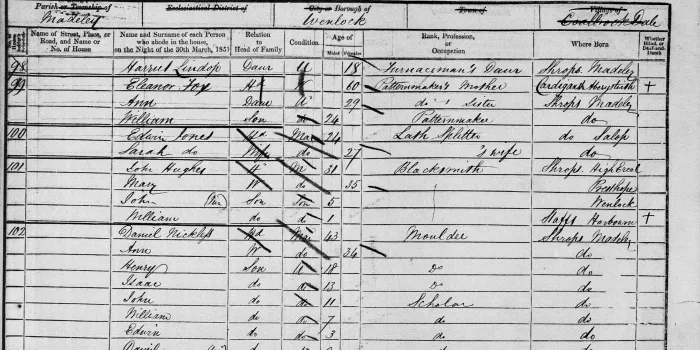 Parish or Township of Ecclesiastical District of City or Borough of Town of Village of
Madeley Wenlock Coalbrook Dale
Name of Street, Place, or Road, and Name or No. of House Name and Surname of each Person who abode in the house, on the Night of the 30th March, 1851 Relation to Head of Family Condition Age of Males Females Rank, Profession, or Occupation Where Born Whether Blind, or Deaf-and-Dumb
98 Harriet Lindop Daur U 18 Furnaceman's Daur Shrops Madeley
99 Eleanor Fox Hd 60 Patternmaker's Mother Cardigansh
Ann Daur U 29 do's Sister Shrops Madeley
William Son do 24 Patternmaker do
100 Edwin Jones Hd Mar 24 Lath Splitter do Salop
Sarah do Wife do 27 's wife do
101 John Hughes Hd Mr 31 Blacksmith Shrops High Ercal
Mary W do 35 Presthope
John Son Son 5 Wenlock
William do do 1 Staffs Harborn
102 Daniel Nickless Hd Mar 43 Moulder Shrops Madeley
Ann W do 34 do
Henry Son U 18 Do do
Isaac do do 13 Do do
John do do 11 Scholar do
William do do 7 do do
Edwin do do 3 do do